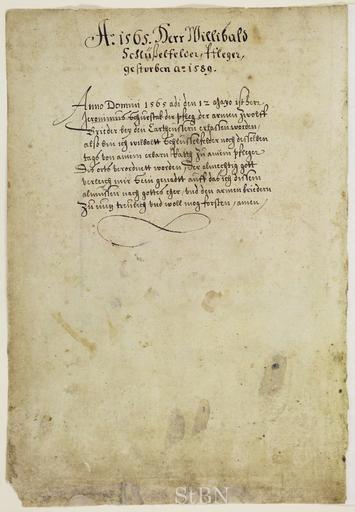 A: 1565. Herr Willibald
Schlüsselfelder, Pfleger,
gestorben A: 1589.
Anno Domini 1565 adi den 12 Mayo ist herr
Jeronimus Schürstab der pfleg der armen zwolff
Brüder bey den Carthensern erlassen worden,
also bin ich wilbolt Schlüsselfelder noch desselden
tags von ainem erbarn Rath zu ainem pfleger
des orts verordnet worden, Der almechtig gott
verleich mir sein genadt auff das ich disem
almussen nach gottes eher, und den armen brüdern
zu nutz treulich und woll mog forsten, amen
StBN